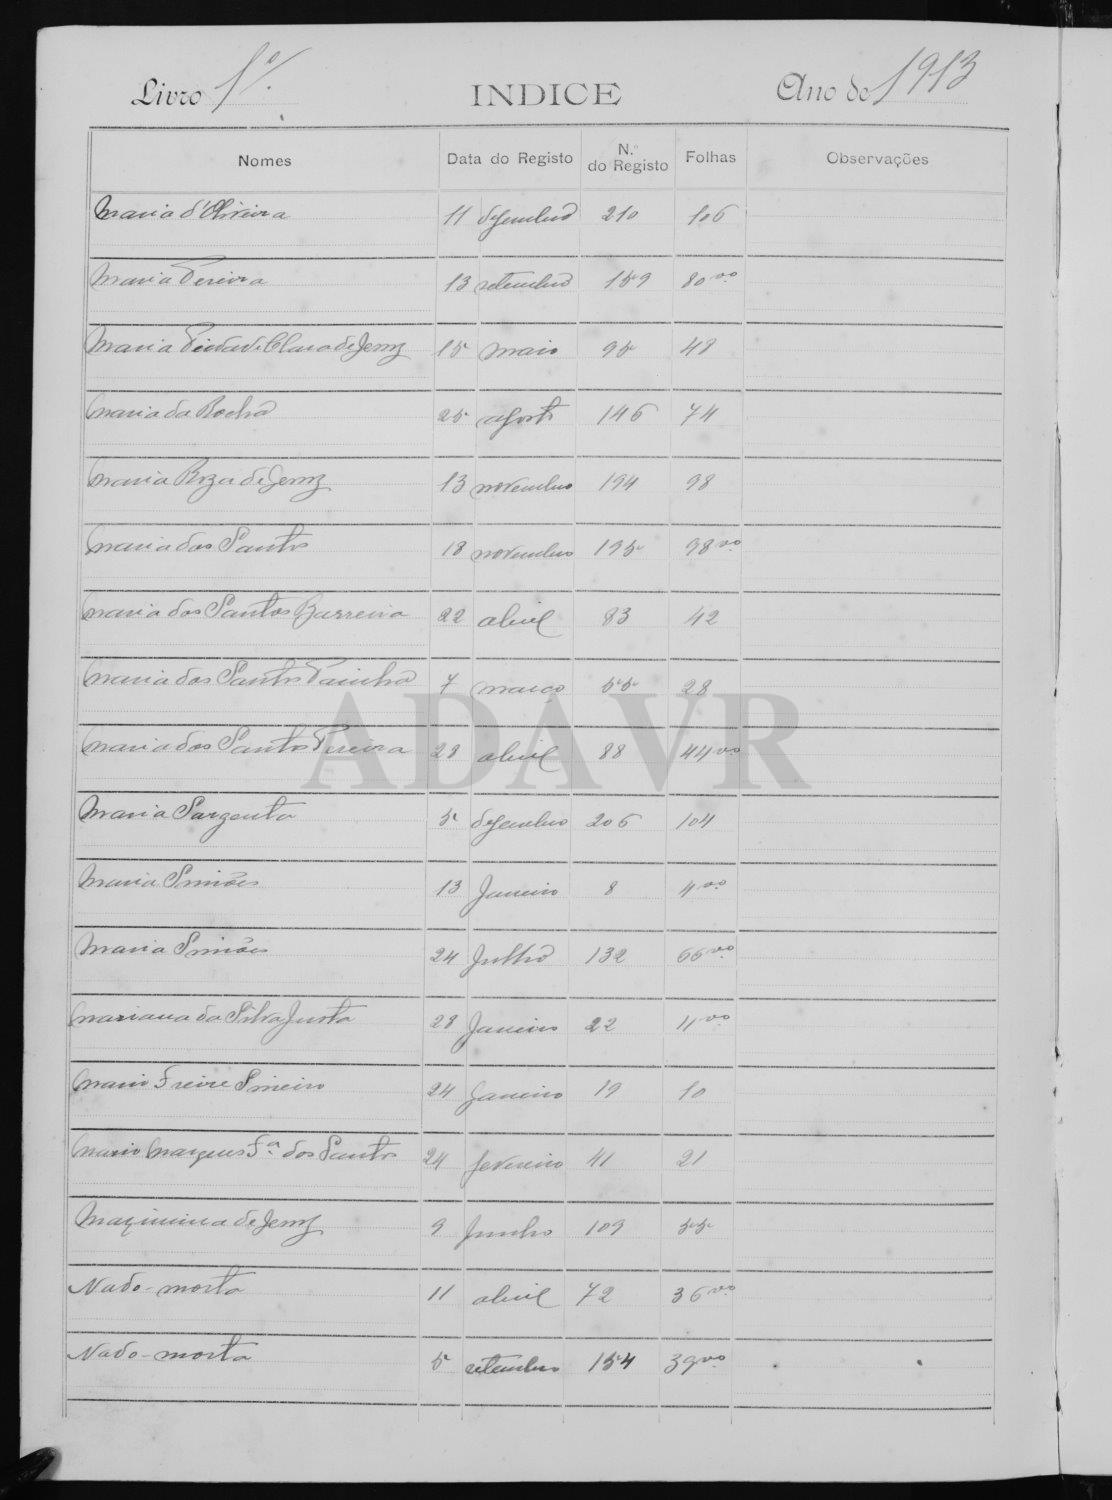 Livro 1º.
INDICE
Ano de 1913
Nomes Data do Registo N.º do Registo Folhas Observações
Maria d'Oliveira 11 dezembro 210 106
Maria Pereira 13 setembro 159 80vo.
Maria Piedade Clara de Jesus 15 maio 95 48
Maria da Rocha 25 agosto 146 74
Maria Roza de Jesus 13 novembro 194 98
Maria dos Santos 18 novembro 195 98vo.
Maria dos Santos Barreira 22 abril 83 42
Maria dos Santos Painha 7 março 55 28
Maria dos Santos Pereira 28 abril 88 44vo.
Maria Sargenta 5 dezembro 206 104
Maria Simões 13 Janeiro 8 4vo.
Maria Simões 24 Julho 132 66vo.
Mariana da Silva Justa 28 Janeiro 22 11vo.
Mario Freire 24 Janeiro 19 10
Mario Marques Fª. dos Santos 24 fevereiro 41 21
Maximina de Jesus 9 Junho 109 55
Nado-morto 11 abril 72 36vo.
Nado-morto 5 setembro 154 39vo.
ADAVR